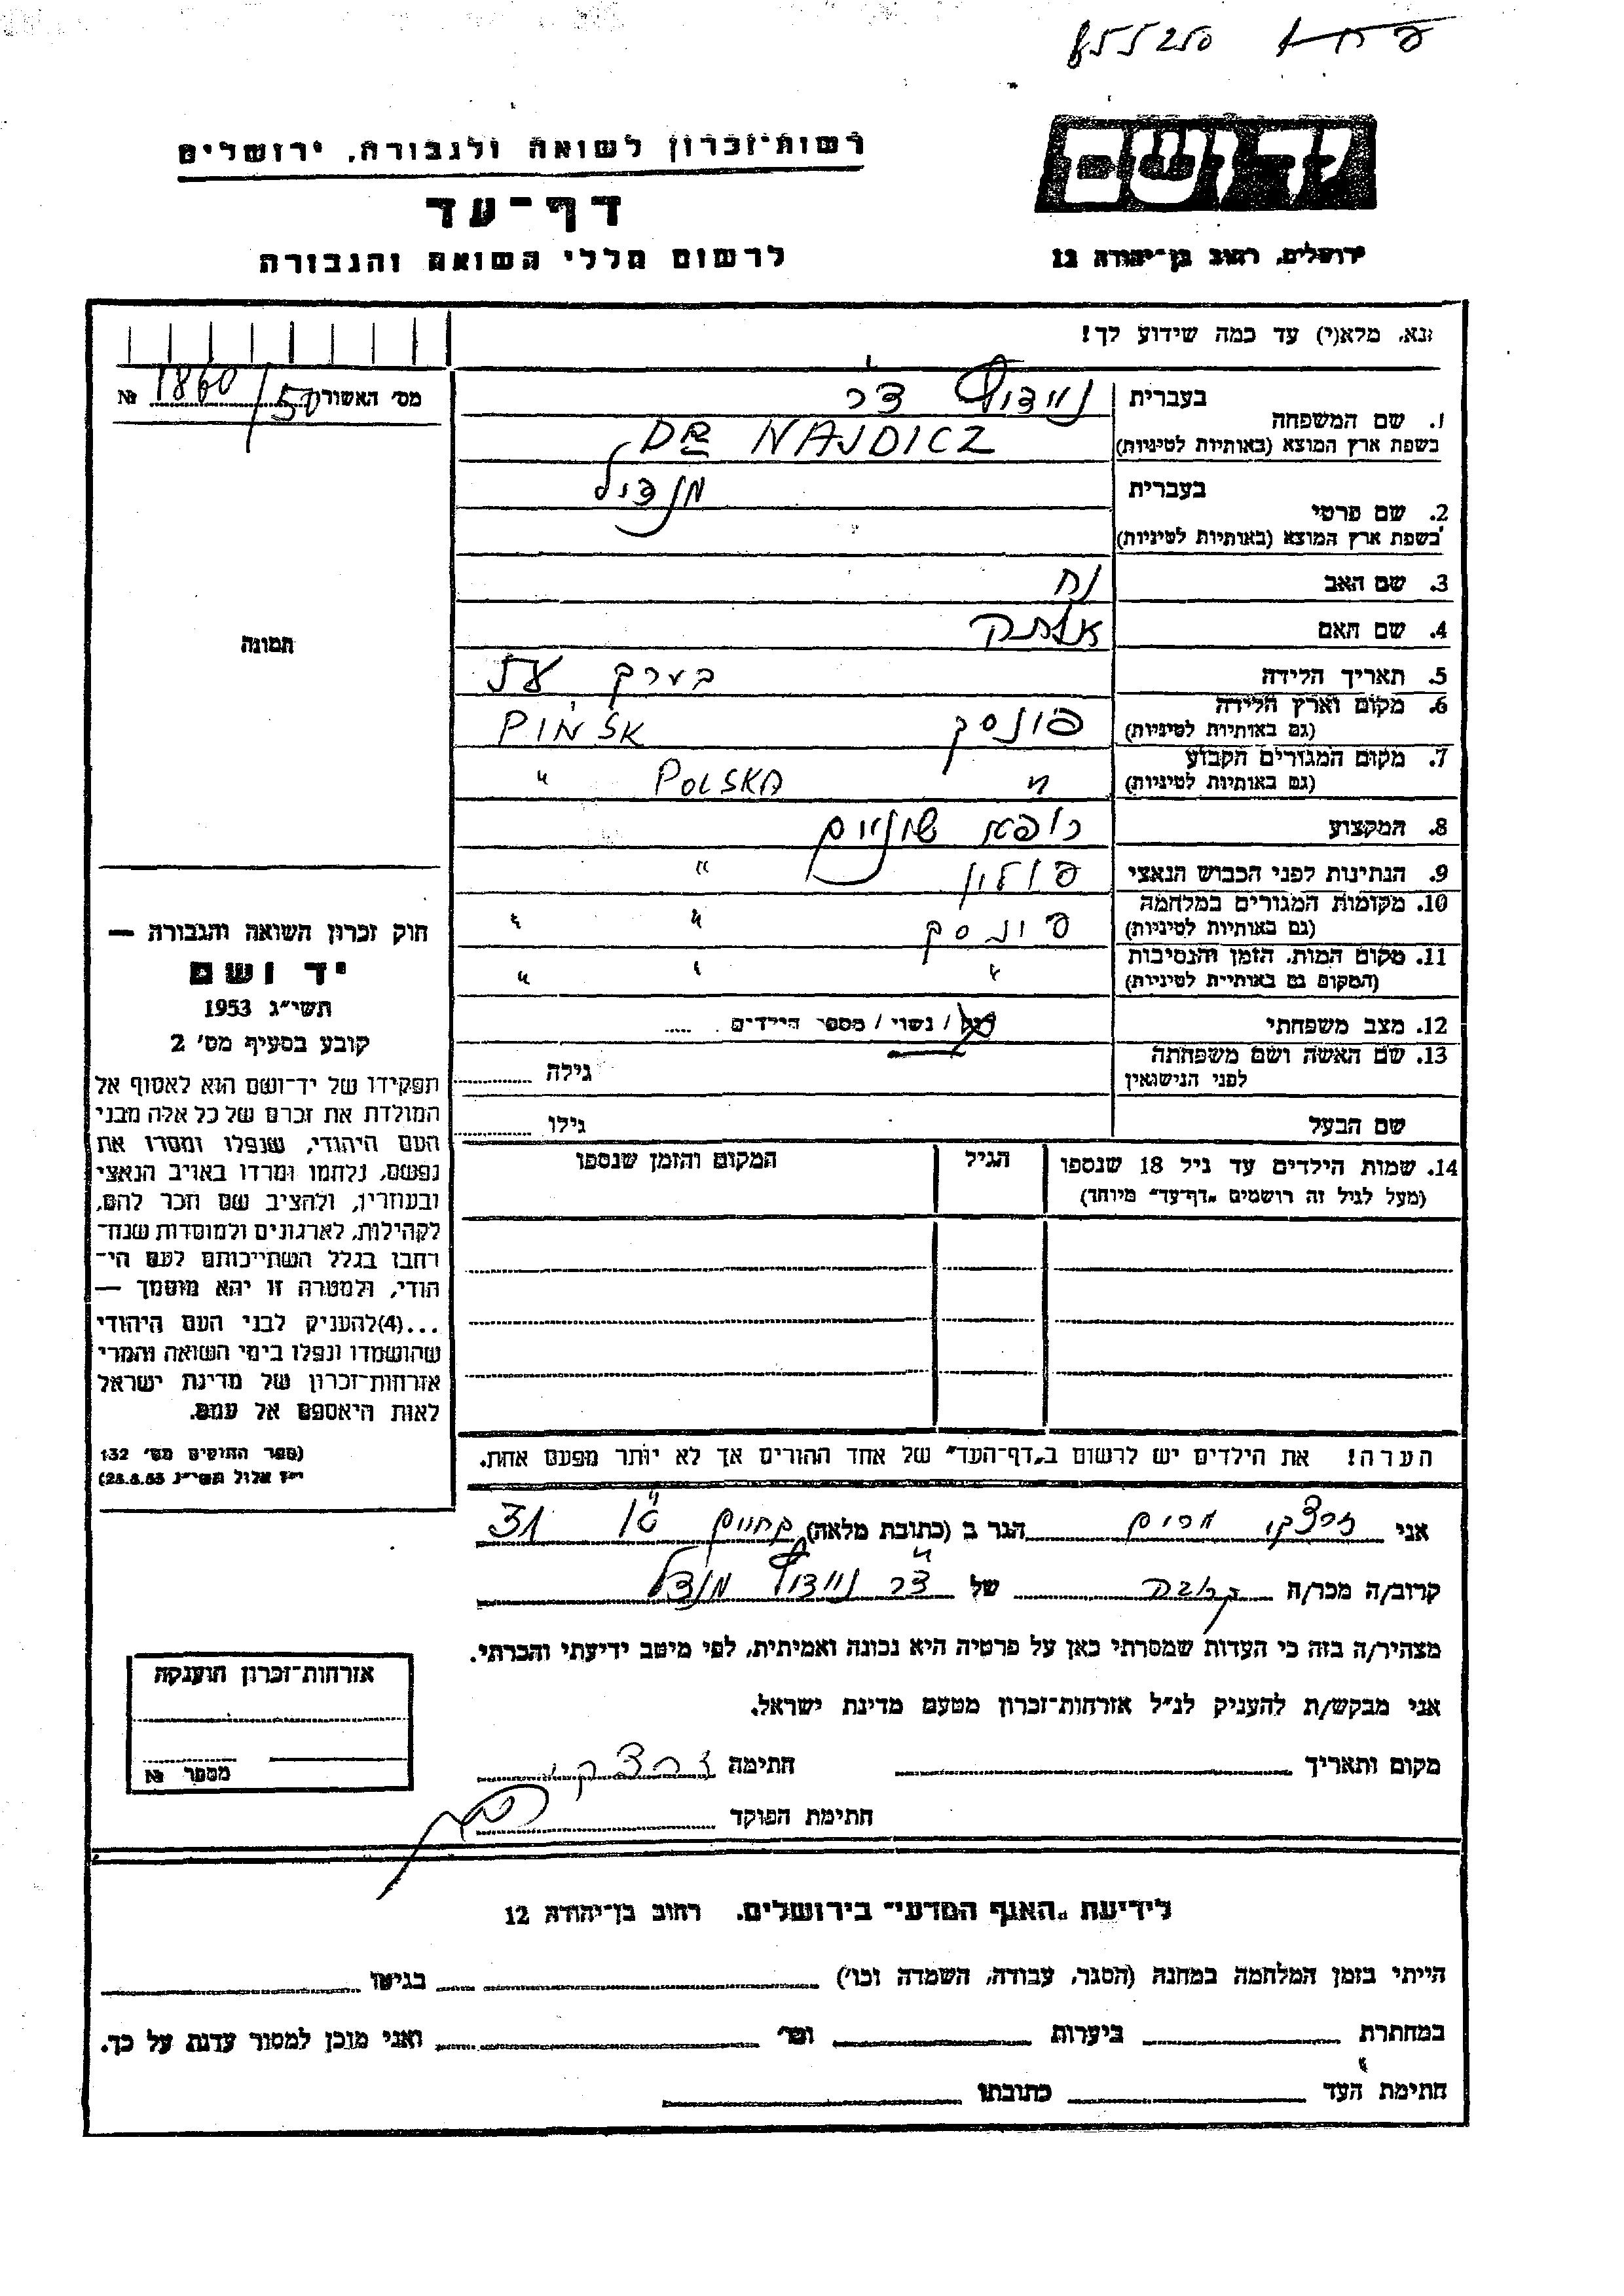 855250
רשות־זכרון לשואה ולגבורה, ירושלים
דף־עד
לרשום חללי השואה והגבורה
יד ושם
ירושלים, רחוב בן־יהודה 12
נא, מלא(י) עד כמה שידוע לך!
מס' האשור 1860/50 №
1. שם המשפחה
בעברית
ניידיץ דר
בשפת ארץ המוצא (באותיות לטיניות)
DR NAJDICZ
2. שם פרטי
בעברית
מנדיל
בשפת ארץ המוצא (באותיות לטיניות)
3. שם האב נח
4. שם האם
5. תאריך הלידה בערך
6. מקום וארץ הלידה
(גם באותיות לטיניות)
פינסק
7. מקום המגורים הקבוע
(גם באותיות לטיניות)
" POLSKA "
8. המקצוע רופא שינים
9. הנתינות לפני הכבוש הנאצי פולין "
10. מקומות המגורים במלחמה
(גם באותיות לטיניות)
פינסק " "
11. מקום המות, הזמן והנסיבות
(המקום גם באותיות לטיניות)
" " "
12. מצב משפחתי רוק / נשוי / מספר הילדים .....
13. שם האשה ושם משפחתה
לפני הנישואין
גילה
שם הבעל גילו
14. שמות הילדים עד גיל 18 שנספו
(מעל לגיל זה רושמים "דף־עד" מיוחד)
הגיל
המקום והזמן שנספו
תמונה
חוק זכרון השואה והגבורה —
יד ושם
תשי"ג 1953
קובע בסעיף מס' 2
תפקידו של יד־ושם הוא לאסוף אל
המולדת את זכרם של כל אלה מבני
העם היהודי, שנפלו ומסרו את
נפשם, נלחמו ומרדו באויב הנאצי
ובעוזריו, ולהציב שם וזכר להם,
לקהילות, לארגונים ולמוסדות שנח־
רבו בגלל השתייכותם לעם הי־
הודי, ולמטרה זו יהא מוסמך —
...(4)להעניק לבני העם היהודי
שהושמדו ונפלו בימי השואה והמרי
אזרחות־זכרון של מדינת ישראל
לאות היאספם אל עמם.
(ספר החוקים מס' 132
י"ז אלול תשי"ג 28.8.53)
הערה! את הילדים יש לרשום ב"דף־העד" של אחד ההורים אך לא יותר מפעם אחת.
אני מרים הגר ב (כתובת מלאה) 31
קרוב/ה מכר/ה קרובה של ד"ר ניידיץ מנדל
מצהיר/ה בזה כי העדות שמסרתי כאן על פרטיה היא נכונה ואמיתית, לפי מיטב ידיעתי והכרתי.
אני מבקש/ת להעניק לנ"ל אזרחות־זכרון מטעם מדינת ישראל.
מקום ותאריך חתימה
חתימת הפוקד
אזרחות־זכרון הוענקה
מספר №
לידיעת "האגף המדעי" בירושלים, רחוב בן־יהודה 12
הייתי בזמן המלחמה במחנה (הסגר, עבודה, השמדה וכו') בגיטו
במחתרת ביערות וכו' ואני מוכן למסור עדות על כך.
חתימת העד כתובתו